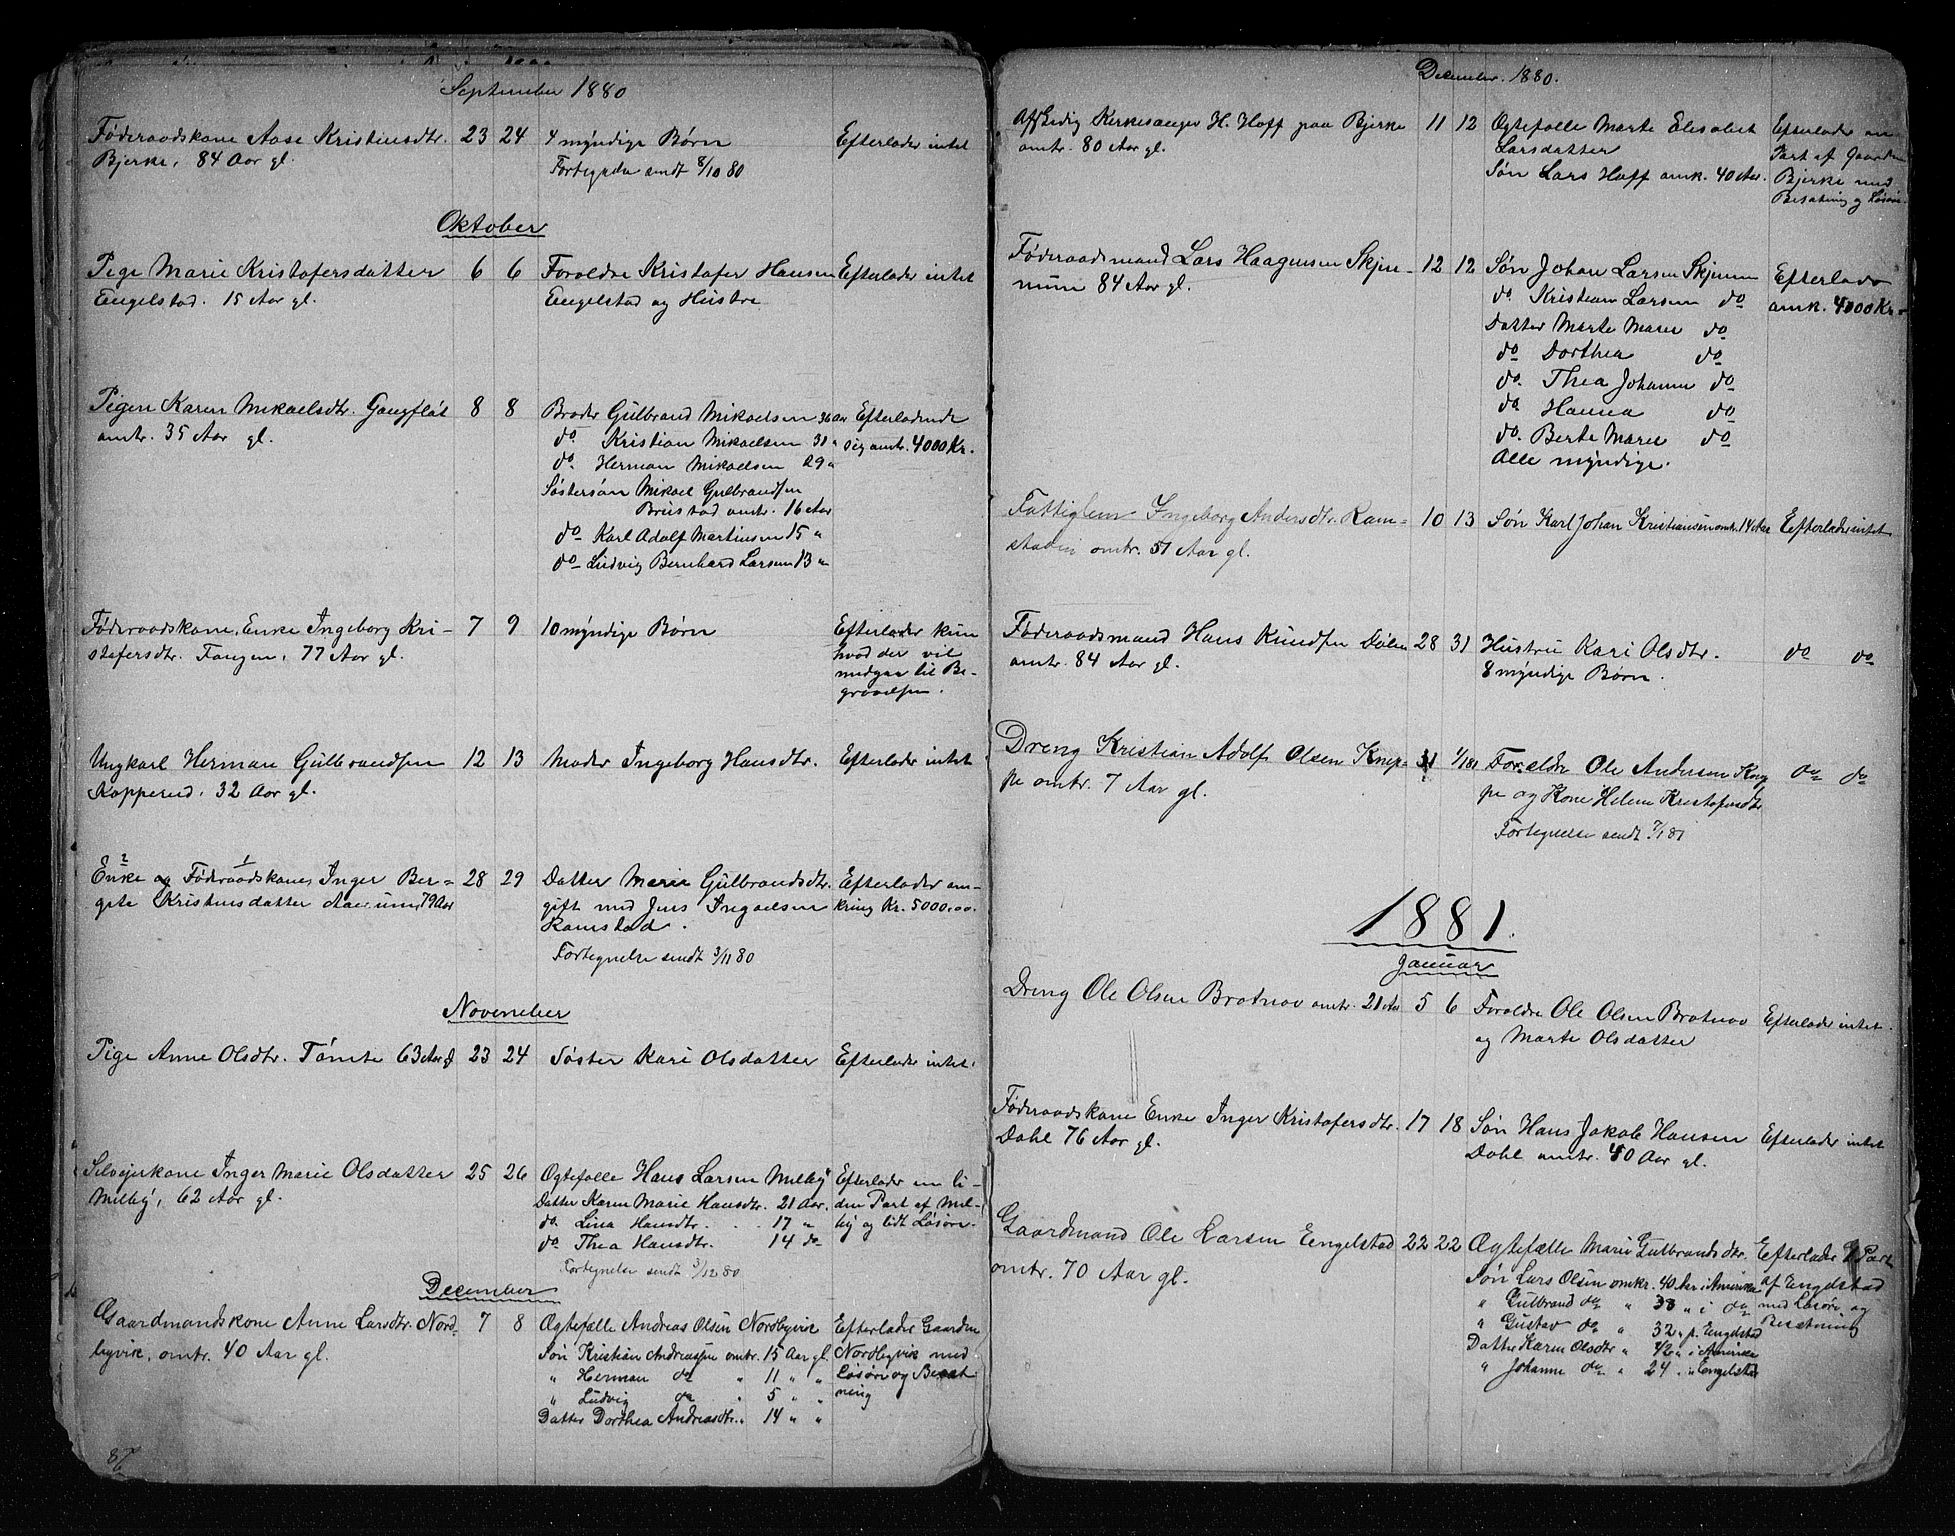 September 1880
Føderaadskone Aase Kristiensdtr. 23 24 4 myndige Børn Efterlader intet
Bjerke, 84 Aar gl. Fortegnelse sendt 8/10 80
Oktober
Pige Marie Kristofersdatter 6 6 Foræeldre Kristofer Hansen Efterlader intet
Engelstad. 15 Aar gl. Engelstad og Hustru
Pigen Karen Mikaelsdtr. Gangfløt 8 8 Broder Gulbrand Mikaelsen 36 aar Efterladende
omtr. 35 Aar gl. do. Kristian Mikaelsen 31 " sig omtr. 4000 Kr.
do. Herman Mikaelsen 29 "
Søstersøn Mikael Gulbrandsen
Brustad omtr. 16 Aar
do Karl Adolf Martinsen 15 "
do Ludvig Bernhard Larsen 13 "
Føderaadskone, Enke Ingeborg Kri- 7 9 10 myndige Børn Efterlader kun
stofersdtr. Tangen, 77 Aar gl. hvad der vil
medgaa til Be-
gravelsen.
Ungkarl Herman Gulbrandsen 12 13 Moder Ingeborg Hansdtr. Efterlader intet
Kopperud, 32 Aar gl.
Enke og Føderaadskone Inger Ber- 28 29 Datter Marie Gulbrandsdtr. Efterlader om-
gete Kristensdatter 79 Aar gift med Jens Ingvelsen kring Kr. 5000.00.
Ramstad.
Fortegnelse sendt 3/11 80
November
Pige Anne Olsdtr. Tømte 63 Aar gl 23 24 Søster Kari Olsdatter Efterlader intet.
Selveierkone Inger Marie Olsdatter 25 26 Ogtefælle Hans Larsen Melby Efterlader en li-
Melby, 62 Aar gl. Datter Karen Marie Hansdtr. 21 Aar. den Part af Mel-
do. Lina Hansdtr. 17 " by og lidt Løsøre.
do Thea Hansdtr. 14 do
Fortegnelse sendt 3/12 80
December
Gaardmandskone Anne Larsdtr. Nord- 7 8 Ogtefælle Andreas Olsen Nordbyvik Efterlader Gaarden
byvik, omtr. 40 Aar gl. Søn Kristian Andreassen omtr. 15 Aar gl. Nordbyvik med
" Herman do " 11 " " Løsøre og Besæt-
" Ludvig do " 5 " " ning
Datter Dorthea Andreasdtr. " 14 " "
December. 1880.
Afskedig Kirkesanger H. Hoff paa Bjerke 11 12 Ogtefælle Marte Elisabet Efterlader en
omtr. 80 Aar gl. Larsdatter Part af Gaarden
Søn Lars Hoff omk. 40 Aar. Bjerke med
Besætning og Løsøre.
Føderaadsmand Lars Haagensen Skjen- 12 12 Søn Johan Larsen Skjenum Efterlader
num 84 Aar gl. do. Kristian Larsen do omk. 4000 Kr.
Datter Marte Marie do
do Dorthea do
do. Thea Johanne do
do Hanna do
do. Berte Marie do
Alle myndige.
Fattiglem Ingeborg Andersdtr. Ram- 10 13 Søn Karl Johan Kristiansen omtr. 14 Aar Efterlader intet
stadei omtr. 51 Aar gl.
Føderaadsmand Hans Knudsen Dølen 28 31 Hustru Kari Olsdtr. do do
omtr. 84 Aar gl. 8 myndige Børn.
Dreng Kristian Adolf Olsen Knep- 31 1/1 81 Forældre Ole Andersen Knep do do
pe omtr. 7 Aar gl. pe og Kone Helene Kristofersdtr
Fortegnelse sendt 7/1 81
1881.
Januar
Dreng Ole Olsen Brotnov omtr. 21 Aar 5 6 Foreldre Ole Olsen Brotnov Efterlader intet.
og Marte Olsdatter
Føderaadskone Enke Inger Kristofersdtr. 17 18 Søn Hans Jakob Hansen Efterlader intet
Dahl 76 Aar gl. Dahl omtr. 40 Aar gl.
Gaardmand Ole Larsen Engelstad 22 22 Ogtefælle Marie Gulbrandsdtr. Efterlader Part
omtr. 70 Aar gl. Søn Lars Olsen omkr. 40 Aar i Amerika af Engelstad
" Gulbrand do " 38 " i do med Løsøre og
" Gustav do " 32 " p. Engelstad Besætning
Datter Karen Olsdtr " 42 " i Amerika
" Johanne do " 24 " " Engelstad